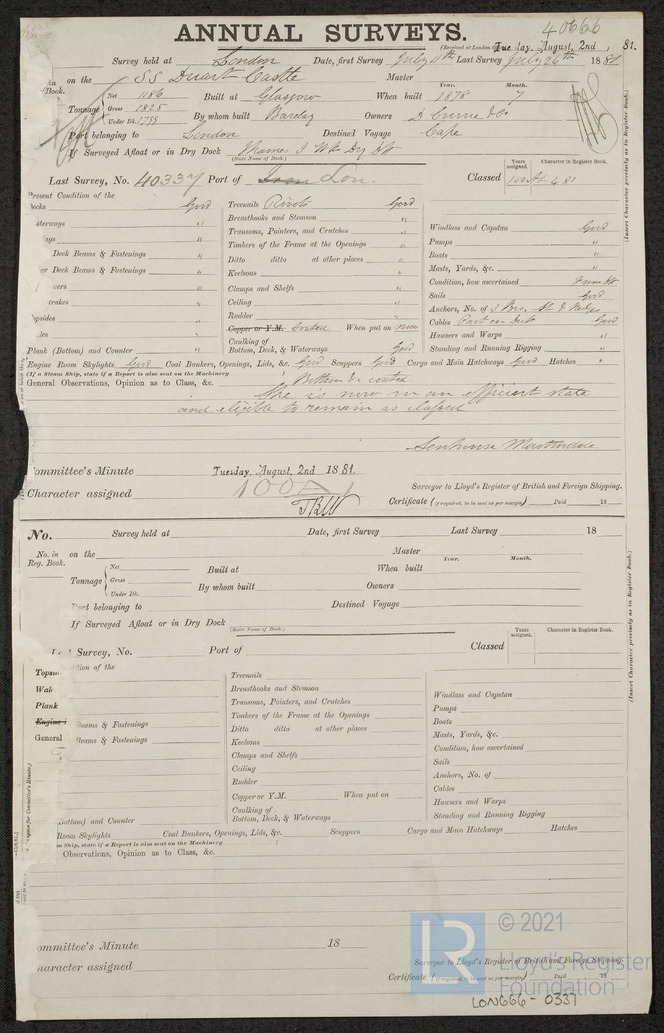 ANNUAL SURVEYS.
40666
(Received at London Tuesday, August, 2nd 81.
Survey held at London Date, first Survey July 11th Last Survey July 26th 1881
in on the SS Duart Castle Master
Book.
Year. Month.
Tonnage Net 1186 Built at Glasgow When built 1878 7
Gross 1825
Under Dk. 1755 By whom built Barclay Owners D Currie & Co
Port belonging to London Destined Voyage Cape
If Surveyed Afloat or in Dry Dock Thames I Wks Dry Dk
(State Name of Dock.)
Last Survey, No. 40337 Port of Lon. Classed
Years assigned. Character in Register Book.
(Insert Character precisely as in Register Book.)
Present Condition of the
Decks Good
aterways "
ngs "
Deck Beams & Fastenings "
er Deck Beams & Fastenings "
vers "
trakes "
opsides "
les "
Plank (Bottom) and Counter "
Treenails Rivets Good
Breasthooks and Stemson "
Transoms, Pointers, and Crutches "
Timbers of the Frame at the Openings "
Ditto ditto at other places "
Keelsons "
Clamps and Shelfs "
Ceiling "
Rudder "
Copper or Y.M. When put on now
Caulking of
Bottom, Deck, & Waterways Good
Windlass and Capstan Good
Pumps "
Boats "
Masts, Yards, &c. "
Condition, how ascertained From Dk
Sails Good
Anchors, No. of
Cables Part on deck Good
Hawsers and Warps "
Standing and Running Rigging "
Engine Room Skylights Good Coal Bunkers, Openings, Lids, &c. Good Scuppers Good Cargo and Main Hatchways Good Hatches "
(If a Steam Ship, state if a Report is also sent on the Machinery
General Observations, Opinion as to Class, &c. Bottom re coated
She is now in an efficient state
and eligible to remain as classed
Senhouse Martindale
ommittee's Minute Tuesday, August, 2nd 1881.
Character assigned 100A1
Surveyor to Lloyd's Register of British and Foreign Shipping.
Certificate (if required, to be sent as per margin) Paid 18
No. Survey held at Date, first Survey Last Survey 18
No. in on the Master
Reg. Book.
Year. Month.
Tonnage Net Built at When built
Gross
Under Dk. By whom built Owners
Port belonging to Destined Voyage
If Surveyed Afloat or in Dry Dock
(State Name of Dock.)
Last Survey, No. Port of Classed
Years assigned. Character in Register Book.
(Insert Character precisely as in Register Book.)
tion of the
Plank
Engine
Beams & Fastenings
General
Beams & Fastenings
Bottom) and Counter
Treenails
Breasthooks and Stemson
Transoms, Pointers, and Crutches
Timbers of the Frame at the Openings
Ditto ditto at other places
Keelsons
Clamps and Shelfs
Ceiling
Rudder
Copper or Y.M. When put on
Caulking of
Bottom, Deck, & Waterways
Windlass and Capstan
Pumps
Boats
Masts, Yards, &c.
Condition, how ascertained
Sails
Anchors, No. of
Cables
Hawsers and Warps
Standing and Running Rigging
Room Skylights Coal Bunkers, Openings, Lids, &c. Scuppers Cargo and Main Hatchways Hatches
m Ship, state if a Report is also sent on the Machinery
Observations, Opinion as to Class, &c.
ommittee's Minute 18
haracter assigned
Surveyor to Lloyd's Register of British and Foreign Shipping.
Certificate (if required, to be sent as per margin) Paid 18
LR © 2021
Lloyd's Register
Foundation
LON666-0337